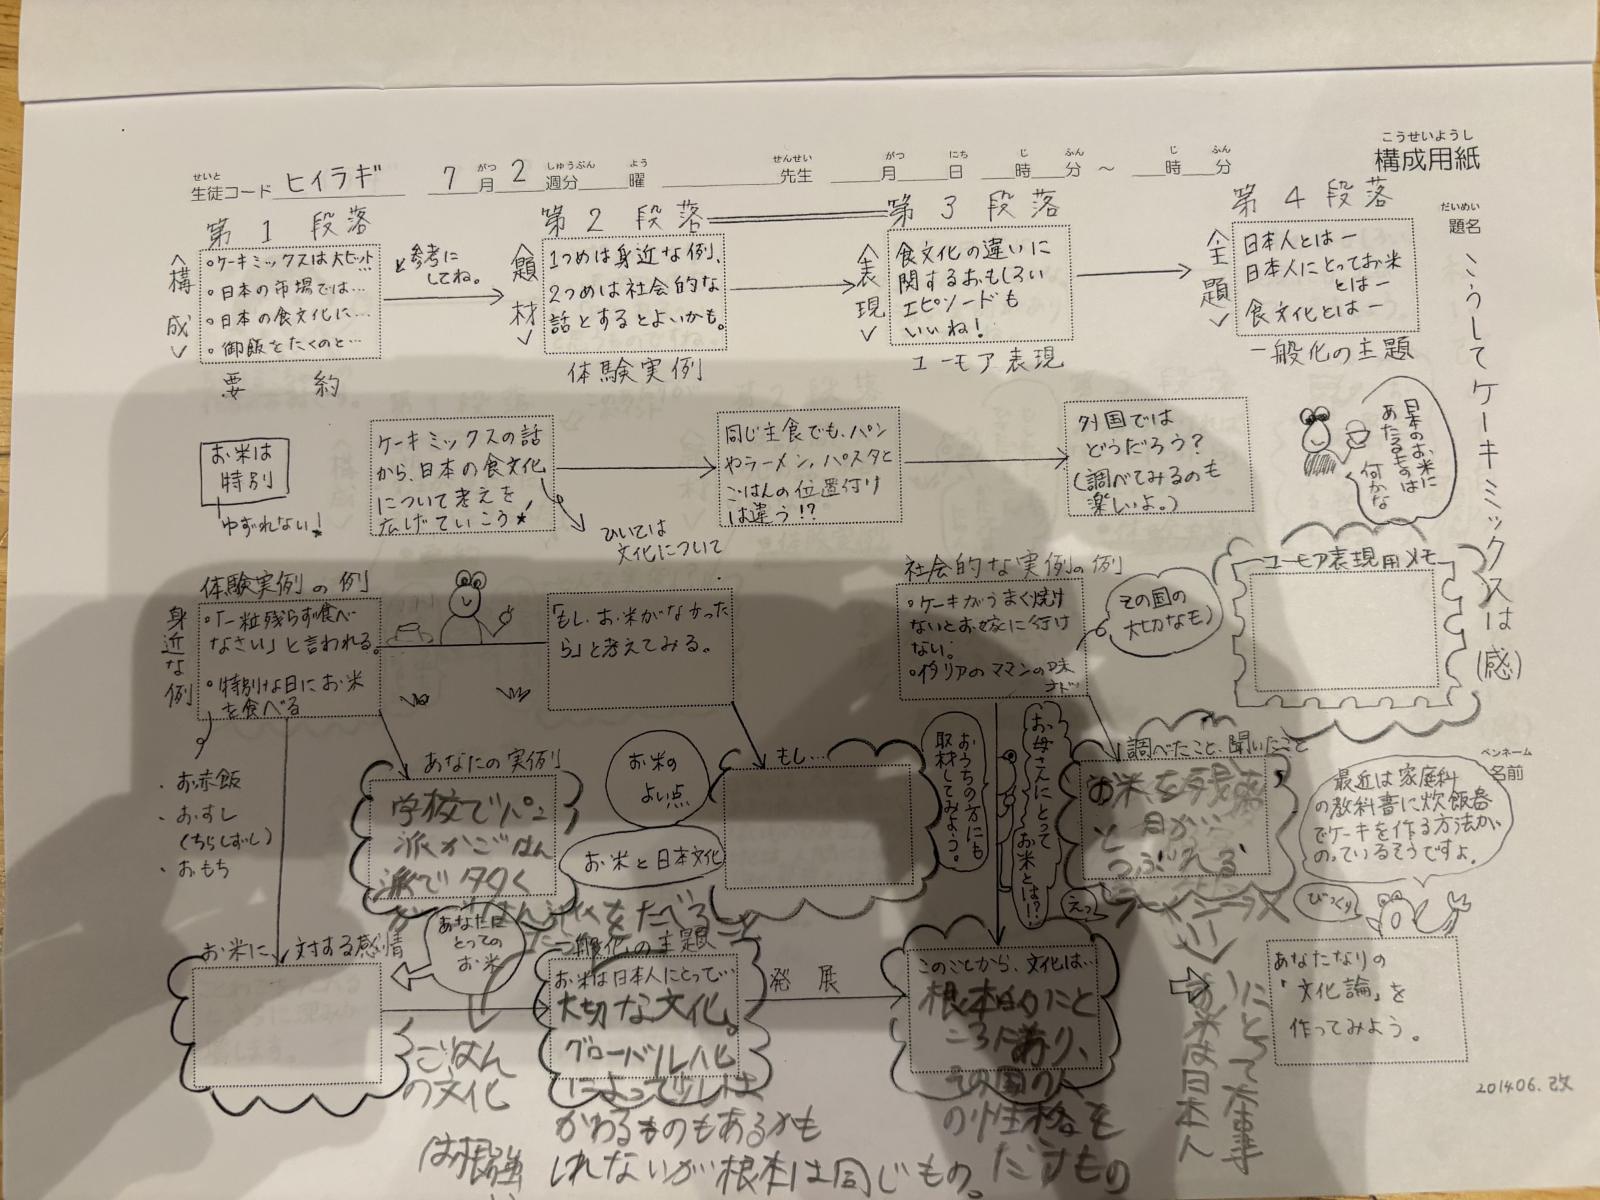 こうせいようし
構成用紙
せいと
生徒コード ヒイラギ 7月 2週分 曜 先生 月 日 時 分 ~ 時 分
がつ しゅうぶん よう せんせい がつ にち じ ふん じ ふん
だいめい
題名
こうしてケーキミックスは(感)
第1段落
<構成>
・ケーキミックスは大ヒット
・日本の市場では…
・日本の食文化に…
・御飯をたくのと…
要約
を参考に
してね。
第2段落
<題材>
1つめは身近な例、
2つめは社会的な
話とするとよいかも。
体験実例
第3段落
<表現>
食文化の違いに
関するおもしろい
エピソードも
いいね!
ユーモア表現
第4段落
<主題>
日本人とはー
日本人にとってお米
とはー
食文化とはー
一般化の主題
お米は
特別
ゆずれない!
ケーキミックスの話
から、日本の食文化
について考えを
広げていこう
ひいては
文化について
同じ主食でも、パン
やラーメン、パスタと
ごはんの位置付け
は違う!?
外国では
どうだろう?
(調べてみるのも
楽しいよ。)
星のお米に
あたるものは
何かな
体験実例の例
身近な例
・「一粒残らず食べ
なさい」と言われる。
・特別な日にお米
を食べる
・お赤飯
・おすし
(ちらしずし)
・おもち
「もし、お米がなかった
ら」と考えてみる。
社会的な実例の例
・ケーキがうまく焼け
ないとお嫁に行け
ない。
・イタリアのママンの味
など
その国の
大切なもの
ユーモア表現用メモ
あなたの実例
学校でパン
派かごはん
派で
お米の
よい点
お米と日本文化
もし…
おうちの方にも
取材してみよう。
お母さんにとって
お米とは!?
えっ
調べたこと、聞いたこと
お米を残す
と目が
つぶれる
ペンネーム
名前
最近は家庭科
の教科書に炊飯器
でケーキを作る方法が
のっているそうですよ。
びっくり
お米に対する感情
あなたに
とっての
お米
ごはん
の文化
は根強
一般化の主題
お米は日本人にとって…
大切な文化。
グローバル化
によって少しは
かわるものもあるかも
しれないが根本は同じもの。
発展
このことから、文化は…
根本的にと
ころに有り、
その国の人
の性格を
だすもの
お米は日本人
にとって大事
あなたなりの
「文化論」を
作ってみよう。
201406.改